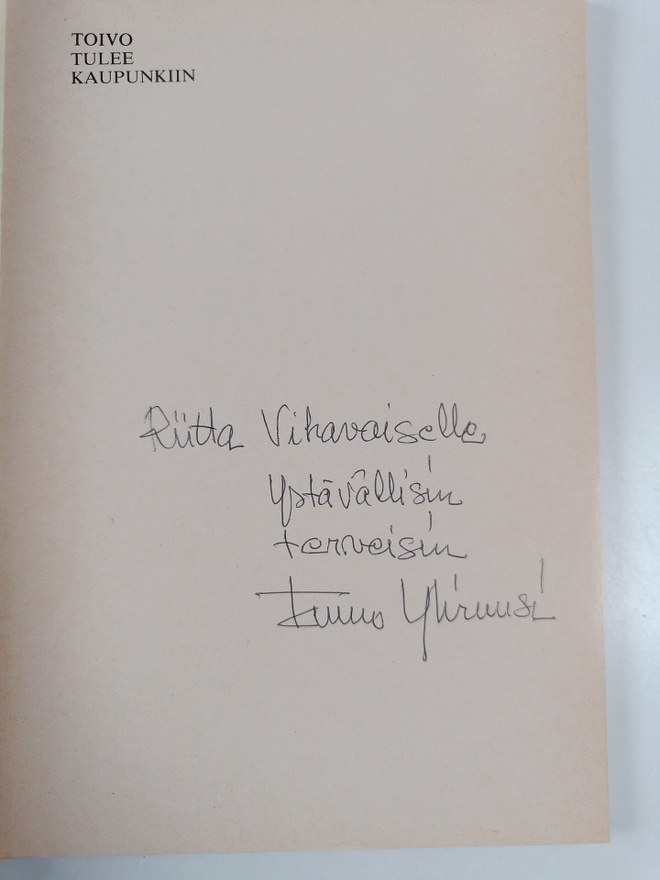 TOIVO
TULEE
KAUPUNKIIN
Riitta Vihavaiselle
Ystävällisin
terveisin
Taimo Yliruusi